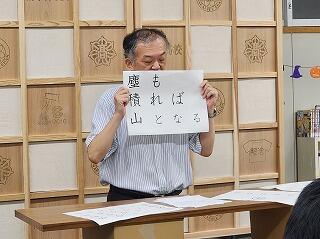 塵も
積れば
山となる